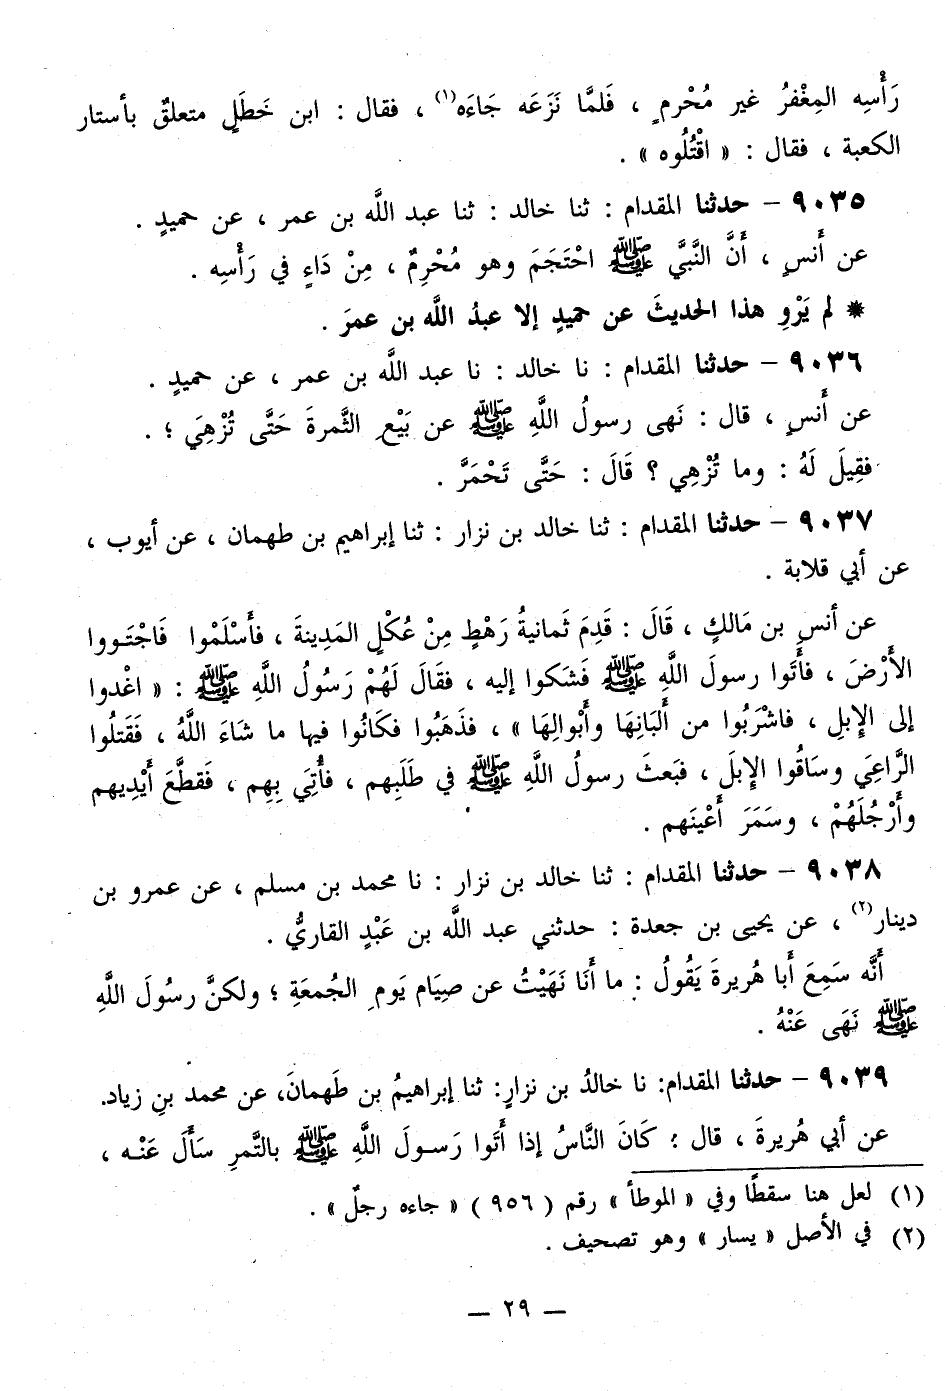 رَأْسِه المِغْفرُ غير مُحْرمٍ ، فَلمَّا نَزَعَه جَاءَه(١) ، فقال : ابن خَطَلٍ متعلقٌ بأستار
الكعبة ، فقال : « اقْتُلُوه » .
٩٠٣٥ – حدثنا المقدام : ثنا خالد : ثنا عبد اللَّه بن عمر ، عن حميدٍ .
عن أَنسٍ ، أَنَّ النَّبيَّ ﷺ احْتَجَمَ وهو مُحْرِمٌ ، مِنْ دَاءٍ في رَأْسِه .
* لم يَرْوِ هذا الحديثَ عن حميدٍ إلا عبدُ اللَّه بن عمرَ .
٩٠٣٦ – حدثنا المقدام : نا خالد : نا عبد اللَّه بن عمر ، عن حميدٍ .
عن أَنسٍ ، قال : نَهى رسولُ اللَّهِ ﷺ عن بَيْعِ الثَّمرةَ حَتَّى تُزْهِيَ ؛ .
فقِيلَ لَهُ : وما تُزْهِي ؟ قَالَ : حَتَّى تَحْمَرَّ .
٩٠٣٧ – حدثنا المقدام : ثنا خالد بن نزار : ثنا إبراهيم بن طهمان ، عن أيوب ،
عن أبي قلابة .
عن أنسِ بن مَالكٍ ، قَالَ : قَدِمَ ثَمانيةُ رَهْطٍ مِنْ عُكْلٍ المَدِينةَ ، فأَسْلَمْوا فَاجْتَـووا
الأَرْضَ ، فأَتَوا رسولَ اللَّهِ ﷺ فَشَكوا إليه ، فقَالَ لَهُمْ رَسُولُ اللَّهِ ﷺ : « اغْدوا
إلى الإِبلِ ، فاشْرَبُوا من أَلبَانِهَا وأَبْوالِهَا » ، فذَهَبُوا فكَانُوا فيها ما شَاءَ اللَّهُ ، فَقَتلُوا
الرَّاعِيَ وسَاقُوا الإِبلَ ، فبَعثَ رسولُ اللَّهِ ﷺ في طَلَبِهم ، فأُتِيَ بِهِم ، فَقطَّعَ أَيْدِيهم
وأَرْجُلَهُمْ ، وسَمَرَ أَعْينَهم .
٩٠٣٨ – حدثنا المقدام : ثنا خالد بن نزار : نا محمد بن مسلم ، عن عمرو بن
دينار(٢) ، عن يحيى بن جعدة : حدثني عبد اللَّه بن عَبْدٍ القاريُّ .
أَنَّه سَمِعَ أَبا هُريرةَ يَقُولُ : ما أَنَا نَهَيْتُ عن صِيَام يَومِ الجُمعَةِ ؛ ولكنَّ رسُولَ اللَّهِ
ﷺ نَهَى عَنْهُ .
٩٠٣٩ – حدثنا المقدام: نا خالدُ بن نزارٍ: ثنا إبراهيمُ بن طَهمانَ، عن محمد بنِ زياد.
عن أبي هُريرةَ ، قال : كَانَ النَّاسُ إذا أَتَوا رَسـولَ اللَّهِ ﷺ بالتَّمرِ سَأَلَ عَنْـه ،
(١) لعل هنا سقطًا وفي « الموطأ » رقم ( ٩٥٦ ) « جاءه رجلٌ » .
(٢) في الأصل « يسار » وهو تصحيف .
— ٢٩ —